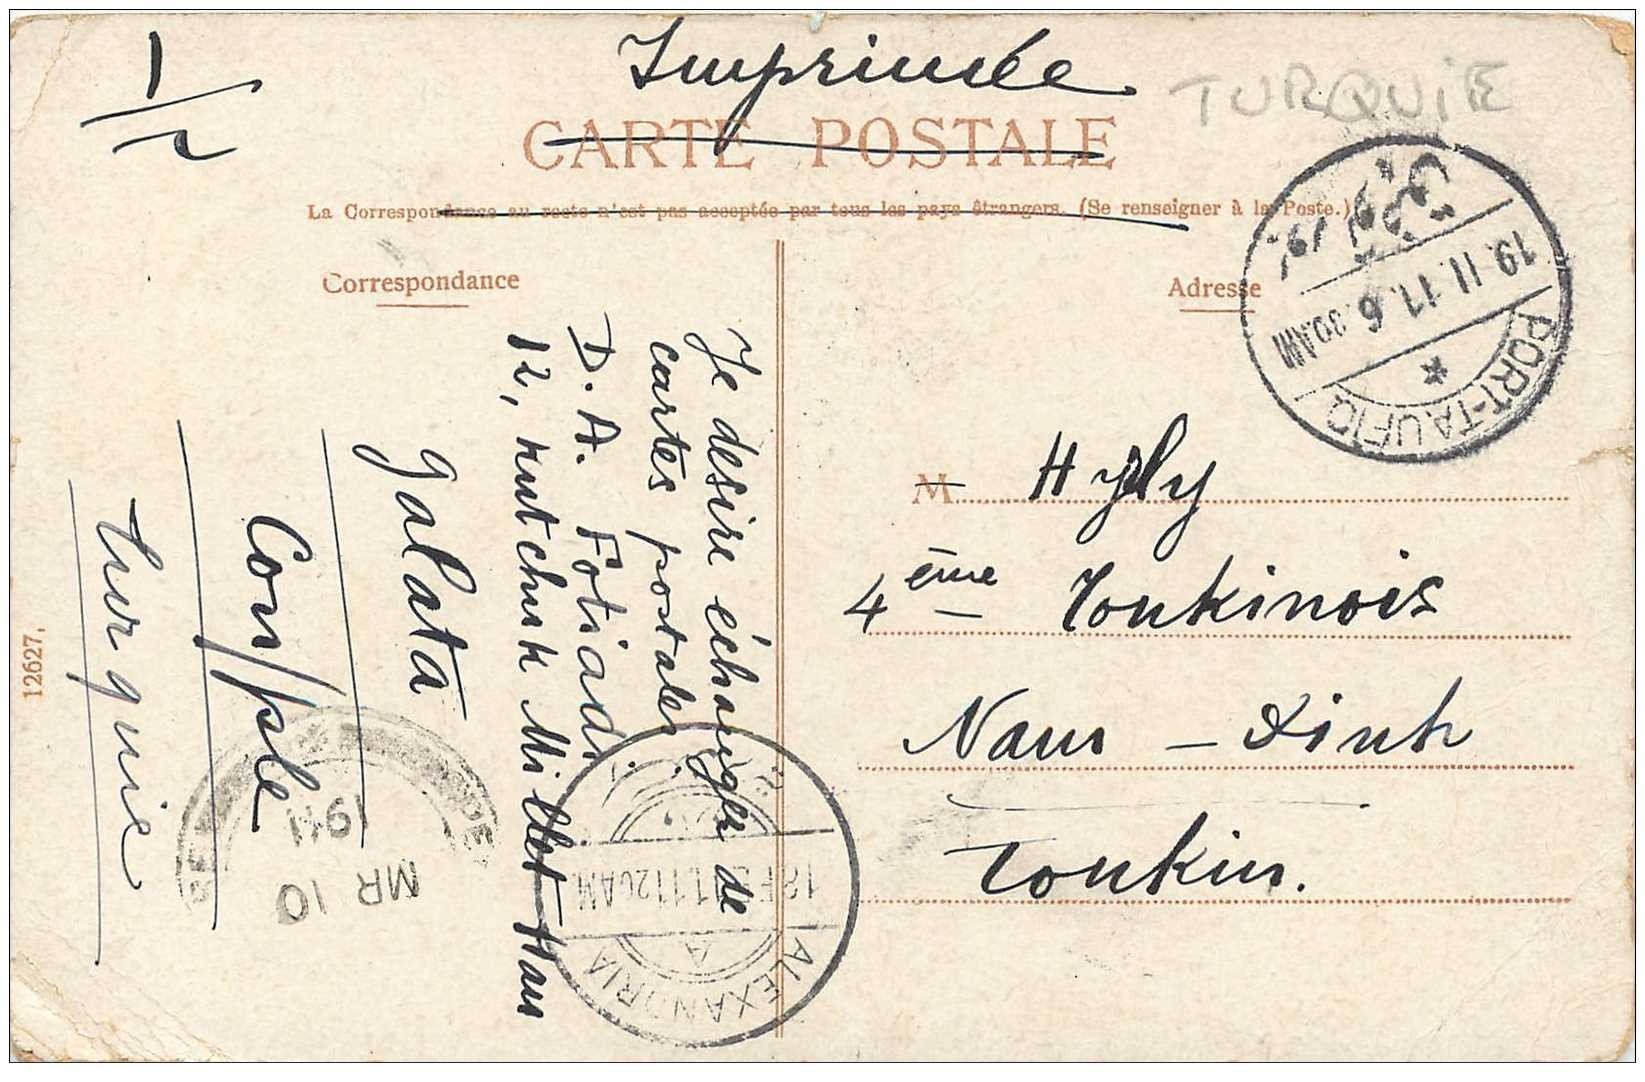 Imprimée
TURQUIE
1/2
CARTE POSTALE
La Correspondance au recto n'est pas acceptée par tous les pays étrangers. (Se renseigner à la Poste.)
Correspondance
Je desire échanger de
cartes postales.
D. A. Fotiadi.
12, Kutchuk Millet Han
Galata
Con/ple
Turquie
12627.
Adresse
PORT-TAUFIQ
19.II.11.6.30AM
M
4ème Tonkinois
Nam-Dinh
Tonkin.
ALEXANDRIA
A
11 20AM
MR 10
1911